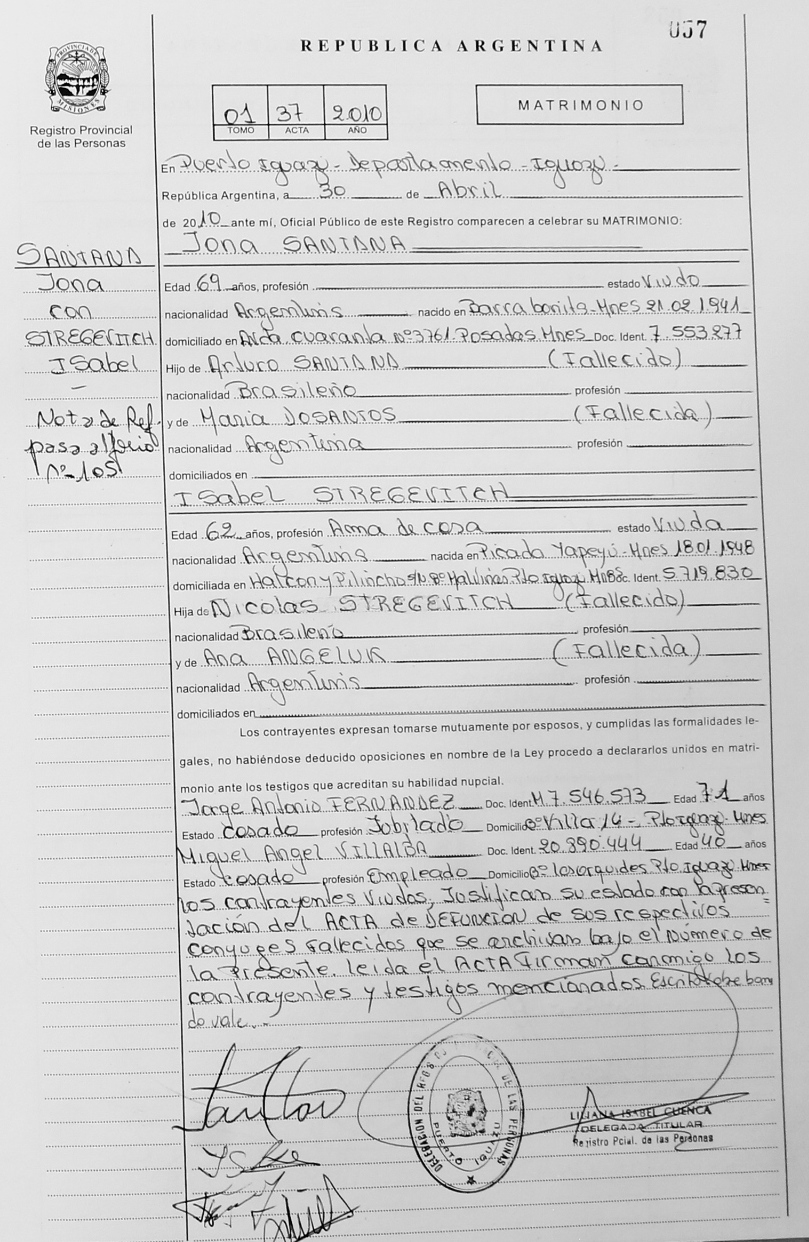 057
REPUBLICA ARGENTINA
PROVINCIA DE MISIONES
Registro Provincial
de las Personas
01 37 2010
TOMO ACTA AÑO
MATRIMONIO
En Puerto Iguazú - Departamento - Iguazú -
República Argentina, a 30 de Abril
de 2010 ante mí, Oficial Público de este Registro comparecen a celebrar su MATRIMONIO:
Jona SANTANA
SANTANA
Jona
con
STREGEVITCH
Isabel
-
Nota de Ref.
pasa al folio
Nº 105
Edad 69 años, profesión estado Viudo
nacionalidad Argentina nacido en Barra bonita - Mnes 21.02.1941
domiciliado en Avda Cuaranta nº 3761 Posadas Mnes Doc. Ident. 7.553.277
Hijo de Arturo SANTANA (Fallecido)
nacionalidad Brasileño profesión
y de Maria DOSANTOS (Fallecida)
nacionalidad Argentina profesión
domiciliados en
Isabel STREGEVITCH
Edad 62 años, profesión Ama de casa estado Viuda
nacionalidad Argentina nacida en Picada Yapeyú - Mnes 18.01.1948
domiciliada en Halcon y Pilincho S/N Bº Malvinas Pto Iguazú Mnes Doc. Ident. 5.719.830
Hija de Nicolas STREGEVITCH (Fallecido)
nacionalidad Brasileño profesión
y de Ana ANGELUK (Fallecida)
nacionalidad Argentina profesión
domiciliados en
Los contrayentes expresan tomarse mutuamente por esposos, y cumplidas las formalidades le-
gales, no habiéndose deducido oposiciones en nombre de la Ley procedo a declararlos unidos en matri-
monio ante los testigos que acreditan su habilidad nupcial.
Jorge Antonio FERNANDEZ Doc. Ident. M 7.546.573 Edad 71 años
Estado Casado profesión Jubilado Domicilio Bº Villa 14 - Pto Iguazú Mnes
Miguel Angel VILLALBA Doc. Ident. 20.390.444 Edad 40 años
Estado Casado profesión Empleado Domicilio Bº las orquides Pto Iguazú Mnes
los contrayentes Viudos, Justifican su estado con la presen
tación del ACTA de DEFUNCION de sus respectivos
conyuges fallecidos que se archivan bajo el Número de
la presente. leida el ACTA Firman conmigo los
contrayentes y testigos mencionados. Escrito sobre borra
do vale.-
DELEGACION DEL REG. DE LAS PERSONAS
PUERTO IGUAZU
LILIANA ISABEL CUENCA
DELEGADA TITULAR
Registro Pcial. de las Personas